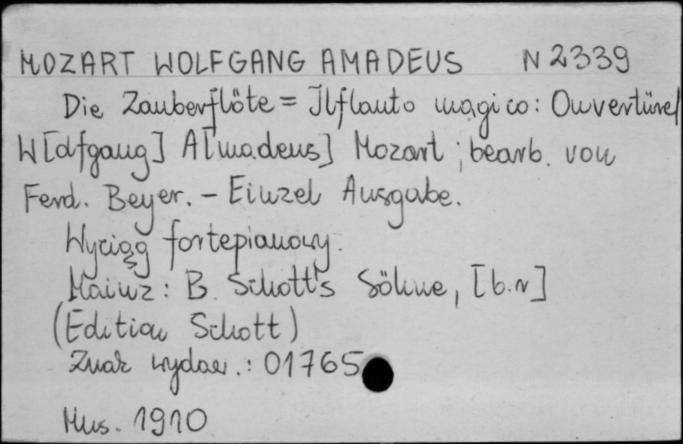 MOZART WOLFGANG AMADEUS N 2339
Die Zauberflöte = Ilflauto magico: Ouvertüre/
W[olfgang] A[madeus] Mozart ; bearb. von
Ferd. Beyer. - Einzel Ausgabe.
Wyciąg fortepianowy.
Mainz: B. Schott's Söhne, [b.r]
(Edition Schott)
Znak wydaw.: 01765
Mus. 1910